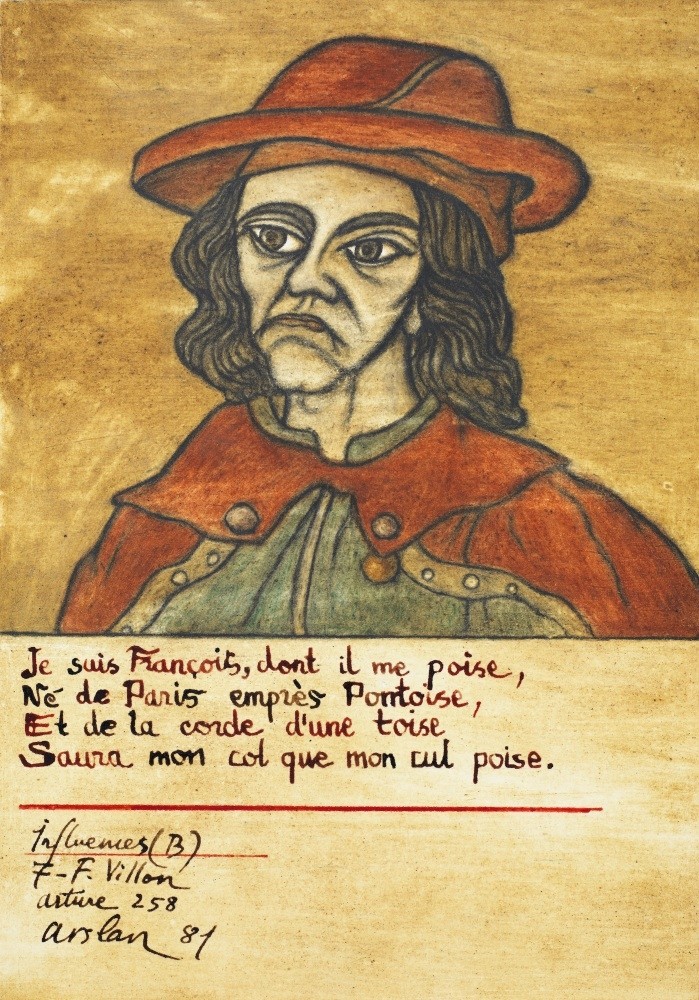 Je suis François, dont il me poise,
Né de Paris emprès Pontoise,
Et de la corde d'une toise
Saura mon col que mon cul poise.
influences (B)
7-F. Villon
arture 258
arslan 81